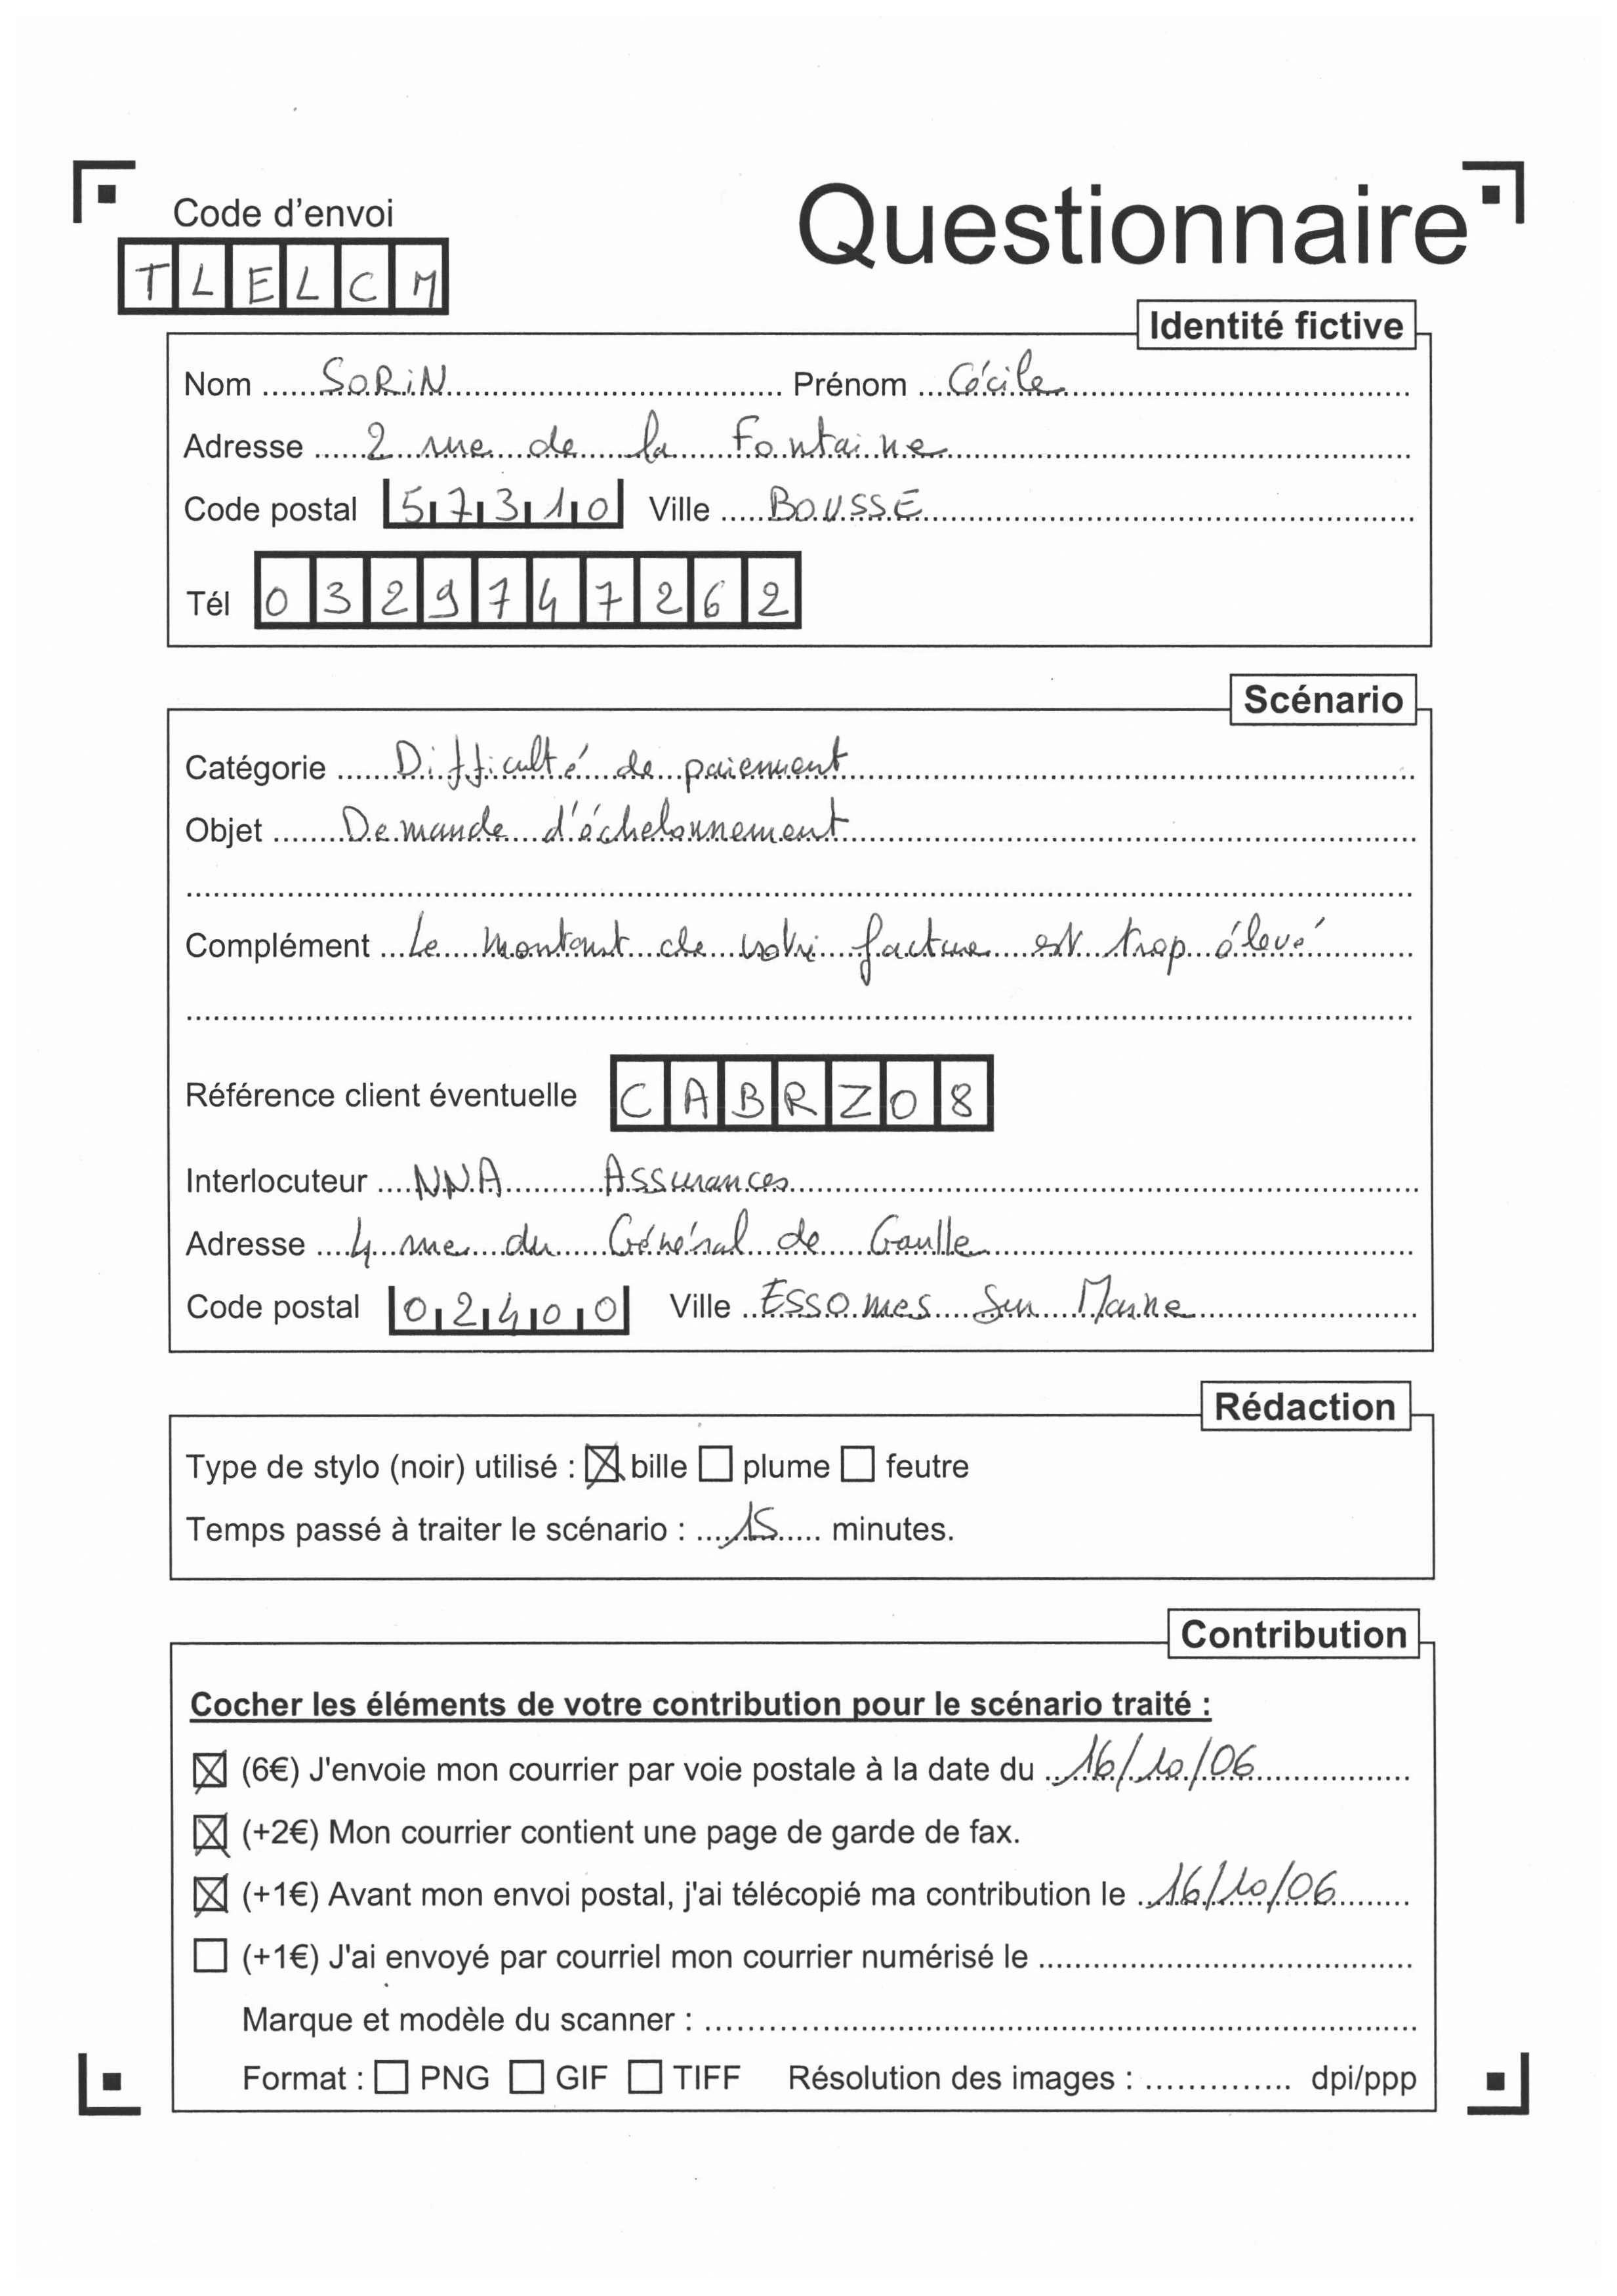 Code d'envoi
Questionnaire
TLELCM
Identité fictive
Nom SORiN Prénom Cécile
Adresse 2 rue de la Fontaine
Code postal 57310 Ville BOUSSE
Tél 0329747262
Scénario
Catégorie Difficulté de paiement
Objet Demande d'échelonnement
Complément Le montant de votre facture est trop élevé
Référence client éventuelle CABRZ08
Interlocuteur NNA Assurances
Adresse 4 rue du Général de Gaulle
Code postal 02400 Ville Essomes Sur Marne
Rédaction
Type de stylo (noir) utilisé : ☒ bille ☐ plume ☐ feutre
Temps passé à traiter le scénario : 15 minutes.
Contribution
Cocher les éléments de votre contribution pour le scénario traité :
☒ (6€) J'envoie mon courrier par voie postale à la date du 16/10/06
☒ (+2€) Mon courrier contient une page de garde de fax.
☒ (+1€) Avant mon envoi postal, j'ai télécopié ma contribution le 16/10/06
☐ (+1€) J'ai envoyé par courriel mon courrier numérisé le
Marque et modèle du scanner :
Format : ☐ PNG ☐ GIF ☐ TIFF Résolution des images : dpi/ppp